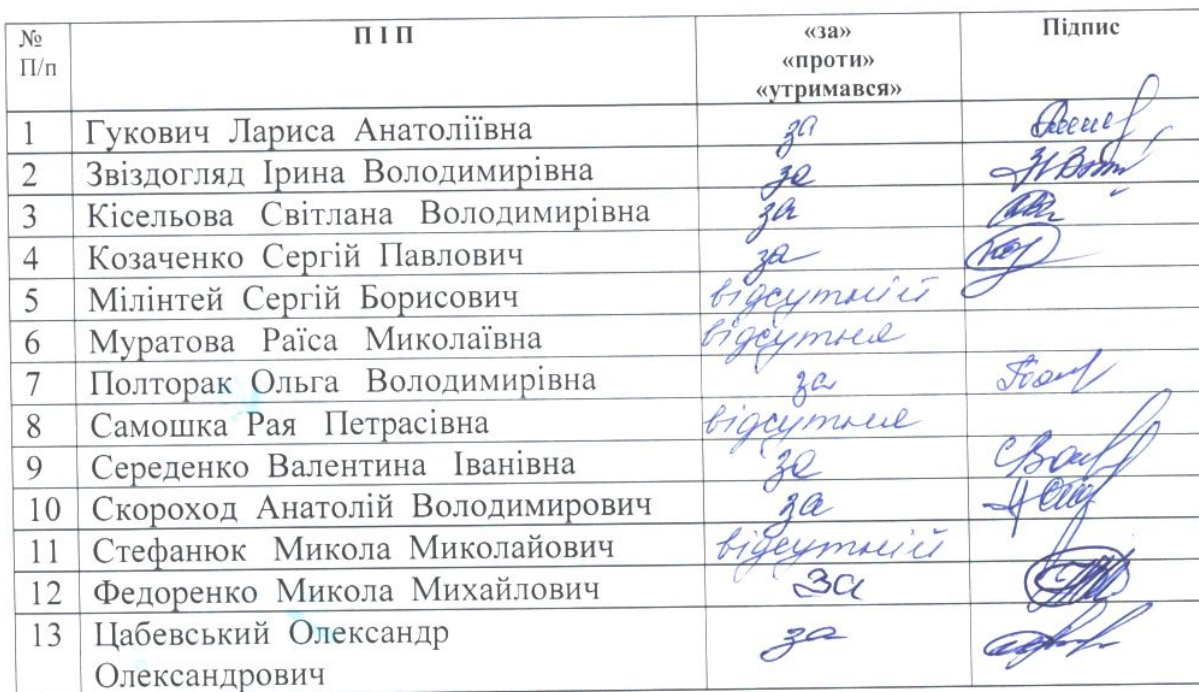 № П/п П І П «за» «проти» «утримався» Підпис
1 Гукович Лариса Анатоліївна за
2 Звіздогляд Ірина Володимирівна за
3 Кісельова Світлана Володимирівна за
4 Козаченко Сергій Павлович за
5 Мілінтей Сергій Борисович відсутній
6 Муратова Раїса Миколаївна відсутня
7 Полторак Ольга Володимирівна за
8 Самошка Рая Петрасівна відсутня
9 Середенко Валентина Іванівна за
10 Скороход Анатолій Володимирович за
11 Стефанюк Микола Миколайович відсутній
12 Федоренко Микола Михайлович За
13 Цабевський Олександр за
Олександрович